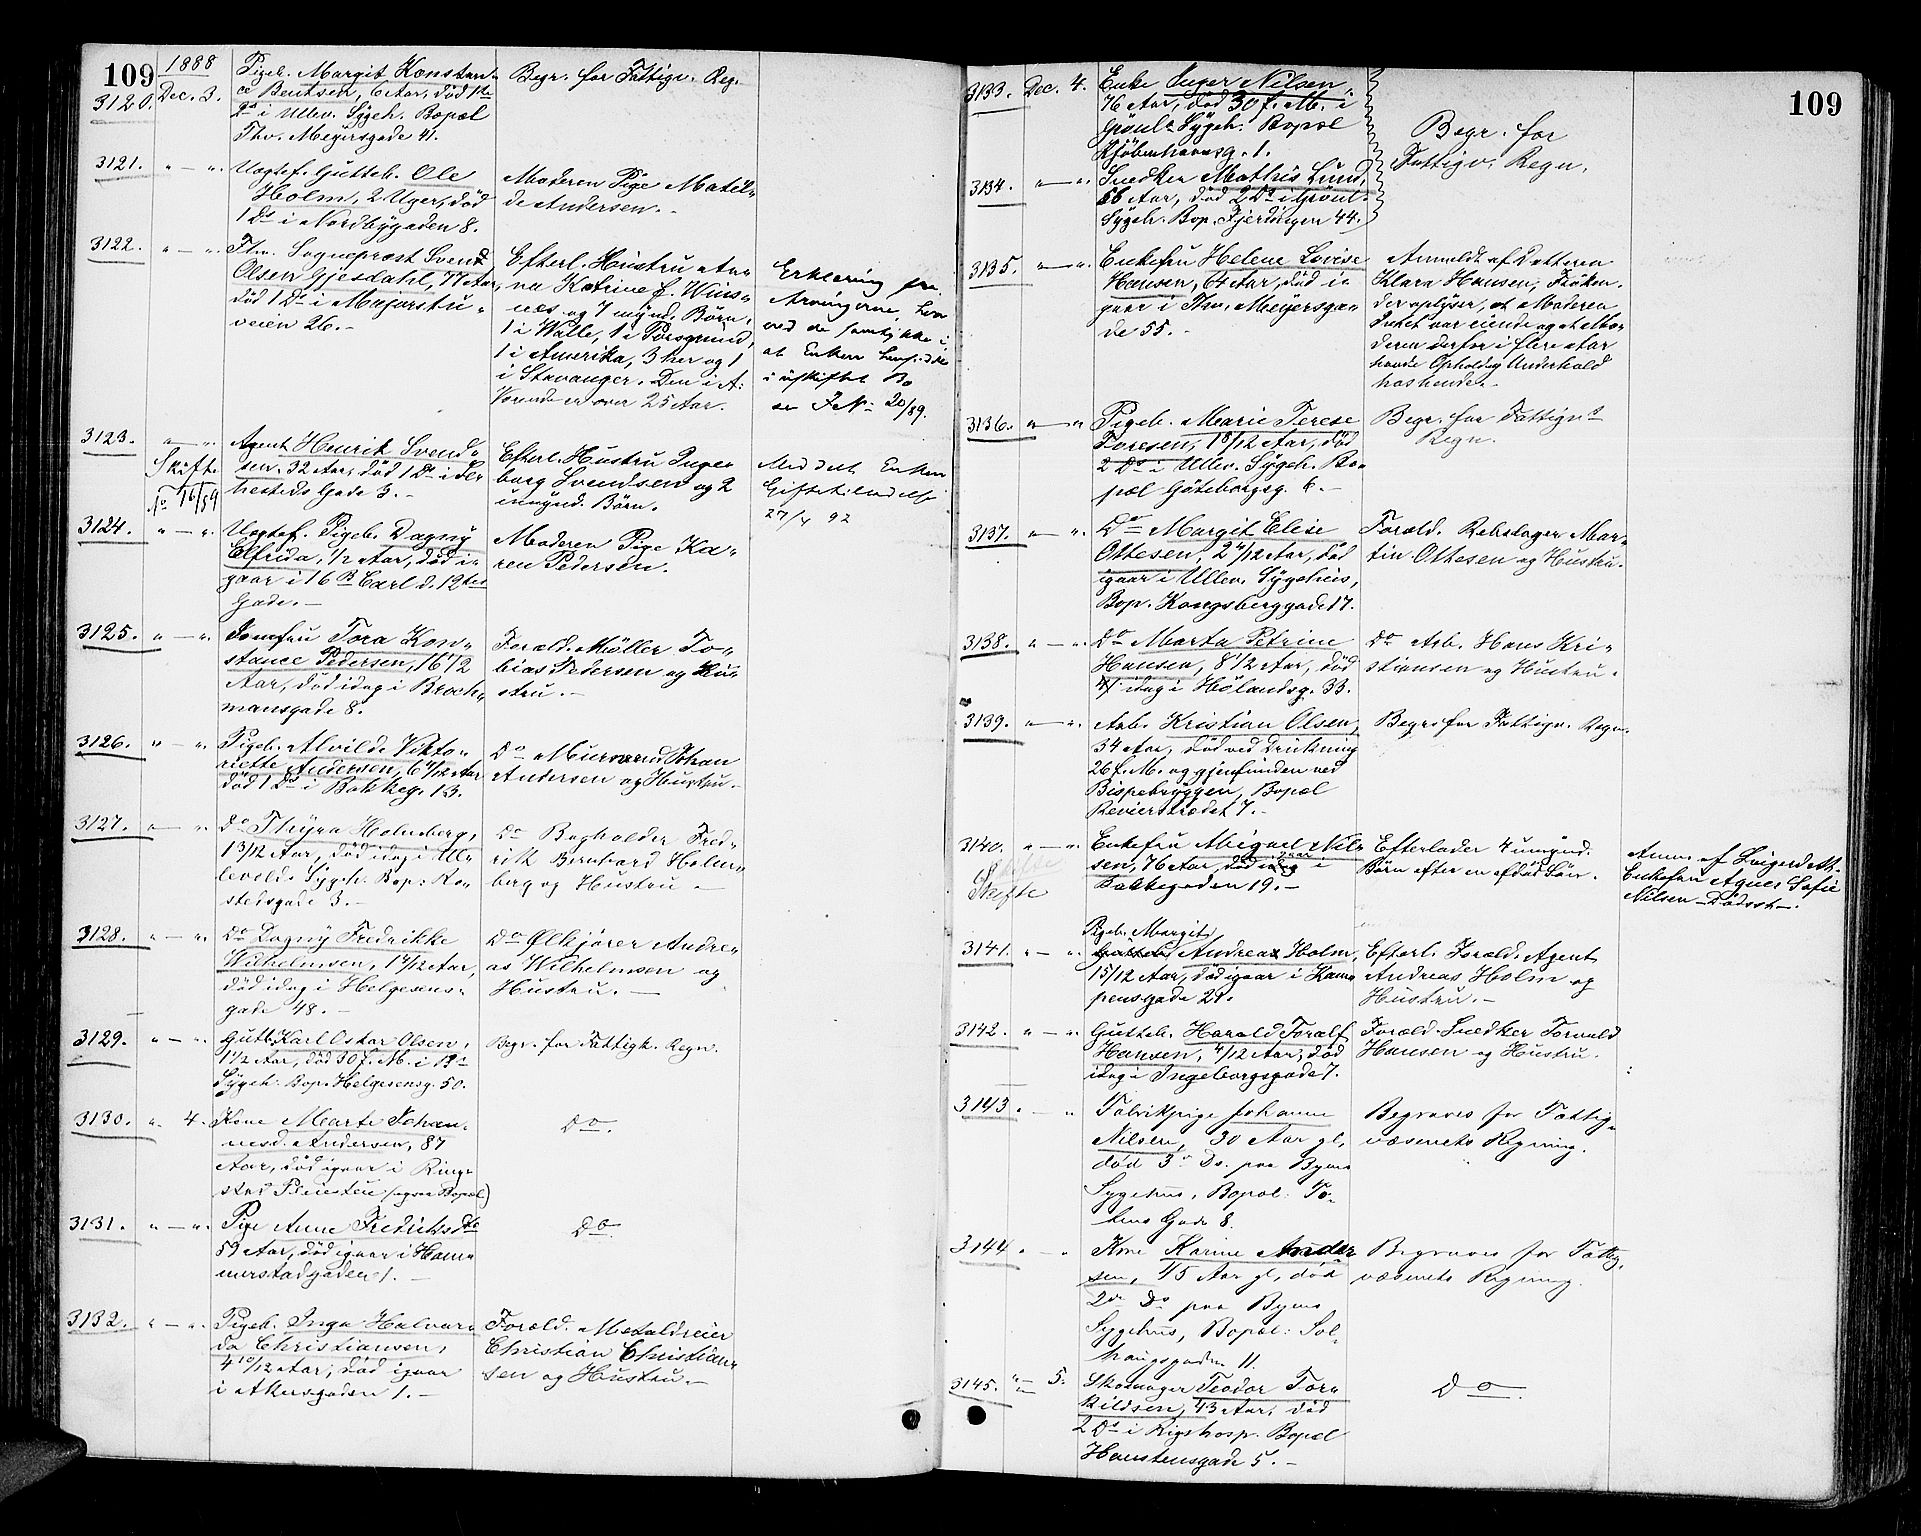 109
1888
3120. Dec. 3. Pigeb. Margit Konstan-
ce Bentsen, 6 Aar, død 1ste
Ds i Ullev. Sygeh. Bopæl
Thv. Meyersgade 41.
Begr. for Fattigv. Reg.
3121. " — " Uægtef. Gutteb. Ole
Holm, 2 Uger, død
1 Ds i Nordbygaden 8.
Moderen Pige Matil-
de Andersen.
3122. " — " Fhv. Sogneprest Svend
Olsen Gjesdahl, 77 Aar,
død 1 Ds i Majorstu-
veien 26.
Efterl. Hustru An-
na Katrine f. Wins-
nes og 7 mynd. Børn,
1 i Walle, 1 i Porsgrund,
1 i Amerika, 3 her og 1
i Stavanger. Den i A.
Værende er over 25 Aar.
Erklæring fra
Arvingerne, hvor
ved de samtykke i
at Enken hensidder
i uskiftet Bo
se J.N: 20/89.
3123. " — " Agent Henrik Svend-
sen, 32 Aar, død 1 Ds i Ser-
hesteds Gade 3.
Skifte
No 16/89
Efterl. Hustru Inge-
borg Svendsen og 2
umynd. Børn.
Meddelt Enken
Giftetilladelse
27/4 92
3124. " — " Uægtef. Pigeb. Dagny
Elfrida, 1/2 Aar, død i-
gaar i 16 B Carl d. 12tes
Gade.
Moderen Pige Ka-
ren Pedersen.
3125. " — " Jomfru Tora Kon-
stance Pedersen, 16 1/2
Aar, død idag i Broch-
mansgade 8.
Foræld. Møller To-
bias Pedersen og Hu-
stru.
3126. " — " Pigeb. Alvilde Vikto-
riette Andersen, 6 4/12 Aar
død 1 Ds i Bakkeg. 13.
Do Murmand Johan
Andersen og Hustru.
3127. " — " Do Thyra Holmberg,
1 3/12 Aar, død idag i Ul-
levolds Sygeh. Bop: Ro-
stedsgade 3.
Do Bogholder Fred-
rik Bernhard Holm-
berg og Hustru
3128. " — " Do Dagny Fredrikke
Wilhelmsen, 1 7/12 Aar,
død idag i Helgesens-
gade 48.
Do Ølkjører Andre-
as Wilhelmsen og
Hustru.
3129. " — " Gutb. Karl Oskar Olsen,
1 1/2 Aar, død 30 f. M. i Bs
Sygeh. Bop. Helgesensg. 50.
Begr. for Fattigk. Regn.
3130. " 4. Kone Marte Johan-
nesd. Andersen, 87
Aar, død igaar i Ring-
stad (ogsaa Bopæl)
Do.
3131. " — " Pige Anne Fredriksdtr
59 Aar, død igaar i Ham-
merstadgaden 1.
Do.
3132. " — " Pigeb. Inga Halvar-
da Christiansen,
4 10/12 Aar, død igaar
i Akersgaden 1.
Foræld. Metaldreier
Christian Christian-
sen og Hustru.
109
3133. Dec. 4. Enke Inger Nilsen,
76 Aar, død 30 f. M. i
Grønl. Sygeh. Bopæl
Kjøbenhavnsg. 1.
3134. " — " Snedker Mathis Lund,
56 Aar, død 2 Ds i Grønl.
Sygeh. Bop. Fjerdingen 44.
Begr. for
Fattigv. Regn.
3135. " — " Enkefru Helene Lovise
Hansen, 64 Aar, død i-
gaar i Thv. Meyersga-
de 55.
Anmeldt af Datteren
Klara Hansen, Frøken.
der oplyser, at Moderen
Intet var eiende og at Mo-
deren derfor i flere Aar
havde Ophold og Underhold
hos hende.
3136. " — " Pigeb. Marie Terese
Toresen, 1 8/12 Aar, død
2 Ds i Ullev. Sygeh. Bo-
pæl Göteborgsg. 6.
Begr. for Fattigvs
Regn.
3137. " — " Do Margit Elise
Ottesen, 2 4/12 Aar, død
igaar i Ullev. Sygehus,
Bop. Kongsberggade 17.
Foræld. Rebslager Mar-
tin Ottesen og Hustru.
3138. " — " Do Marta Petrine
Hansen, 8 1/2 Aar, død
idag i Hølandsg. 33.
Do Arb. Hans Kri-
stiansen og Hustru.
3139. " — " Arb. Kristian Olsen,
34 Aar, død ved Drukning
26 f. M. og gjenfunden ved
Bispebryggen, Bopæl
Revierstrædet 7.
Begr. for Fattigv. Regn.
3140. " — " Enkefru Abigael Nil-
sen, 76 Aar, død igaar i
Bakkegaden 19.
Skifte
Efterlader 4 umynd.
Børn efter en afdød Søn.
Anm. af Svigerdatt.
Enkefru Agnes Sofie
Nilsen Dødsst.
3141. " — " Pigeb. Margit
Gutteb. Andrea Holm,
1 5/12 Aar, død igaar i Kam-
pensgade 29.
Efterl. Foræld. Agent
Andreas Holm og
Hustru.
3142. " — " Gutteb. Harald Toralf
Hansen, 4/12 Aar, død
idag i Ingeborgsgade 7.
Foræld. Snedker Torvald
Hansen og Hustru.
3143. — " Fabrikpige Johanne
Nilsen, 30 Aar gl,
død 3' Ds. paa Byens
Sygehus, Bopæl: To-
tens Gade 8.
Begraves for Fattig-
væsenets Regning.
3144. — " Kone Karine Ander
sen, 45 Aar gl, død
2de Ds paa Byens
Sygehus, Bopæl: Sol-
haugsgaden 11.
Begraves for Fattig-
væsenets Regning.
3145. " — 5. Skomager Teodor Tor-
kildsen, 43 Aar, død
2 Ds i Rigshosp. Bopæl
Hanstensgade 5.
Do.